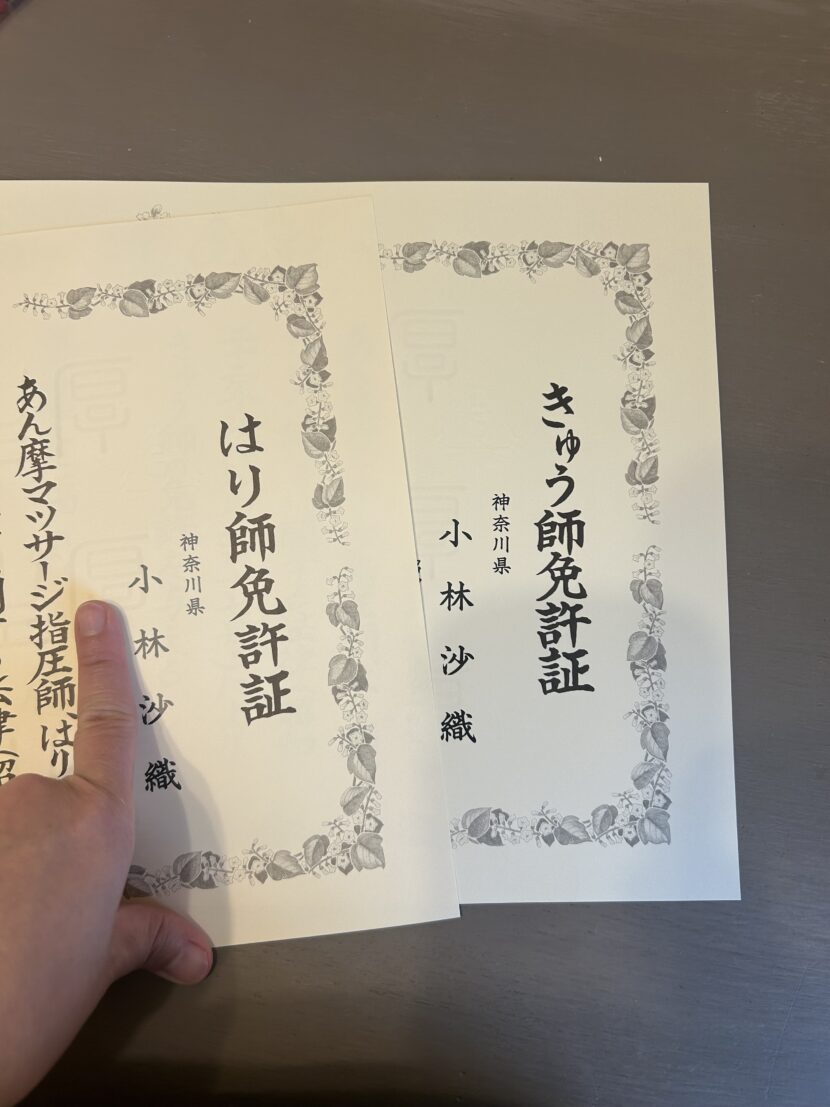 きゅう師免許証
神奈川県
小林沙織
はり師免許証
神奈川県
小林沙織
あん摩マツサージ指圧師、はり